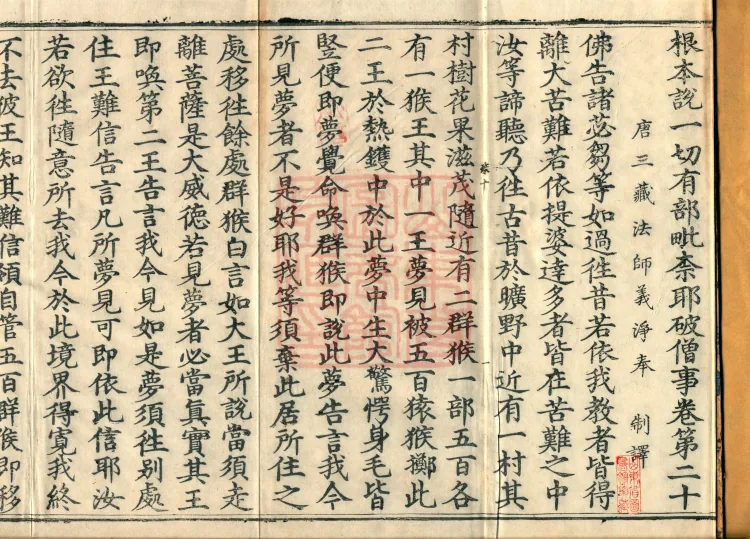 根本說一切有部毗柰耶破僧事卷第二十
唐三藏法師義淨奉 制譯
佛告諸苾芻等如過徃昔若依我教者皆得
離大苦難若依提婆達多者皆在苦難之中
汝等諦聽乃徃古昔於曠野中近有一村其
村樹花果滋茂隨近有二群猴一部五百各
有一猴王其中一王夢見被五百猿猴擲此
二王於熱鑊中於此夢中生大驚愕身毛皆
竪便即夢覺命喚群猴即說此夢告言我今
所見夢者不是好耶我等須棄此居所住之
處移徃餘處群猴白言如大王所說當須走
離菩薩是大威德若見夢者必當真實其王
即喚第二王告言我今見如是夢須徃別處
住王難信告言凡所夢見可即依此信耶汝
若欲徃隨意所去我今於此境界得寬我終
不去彼王知其難信領自管五百群猴即移